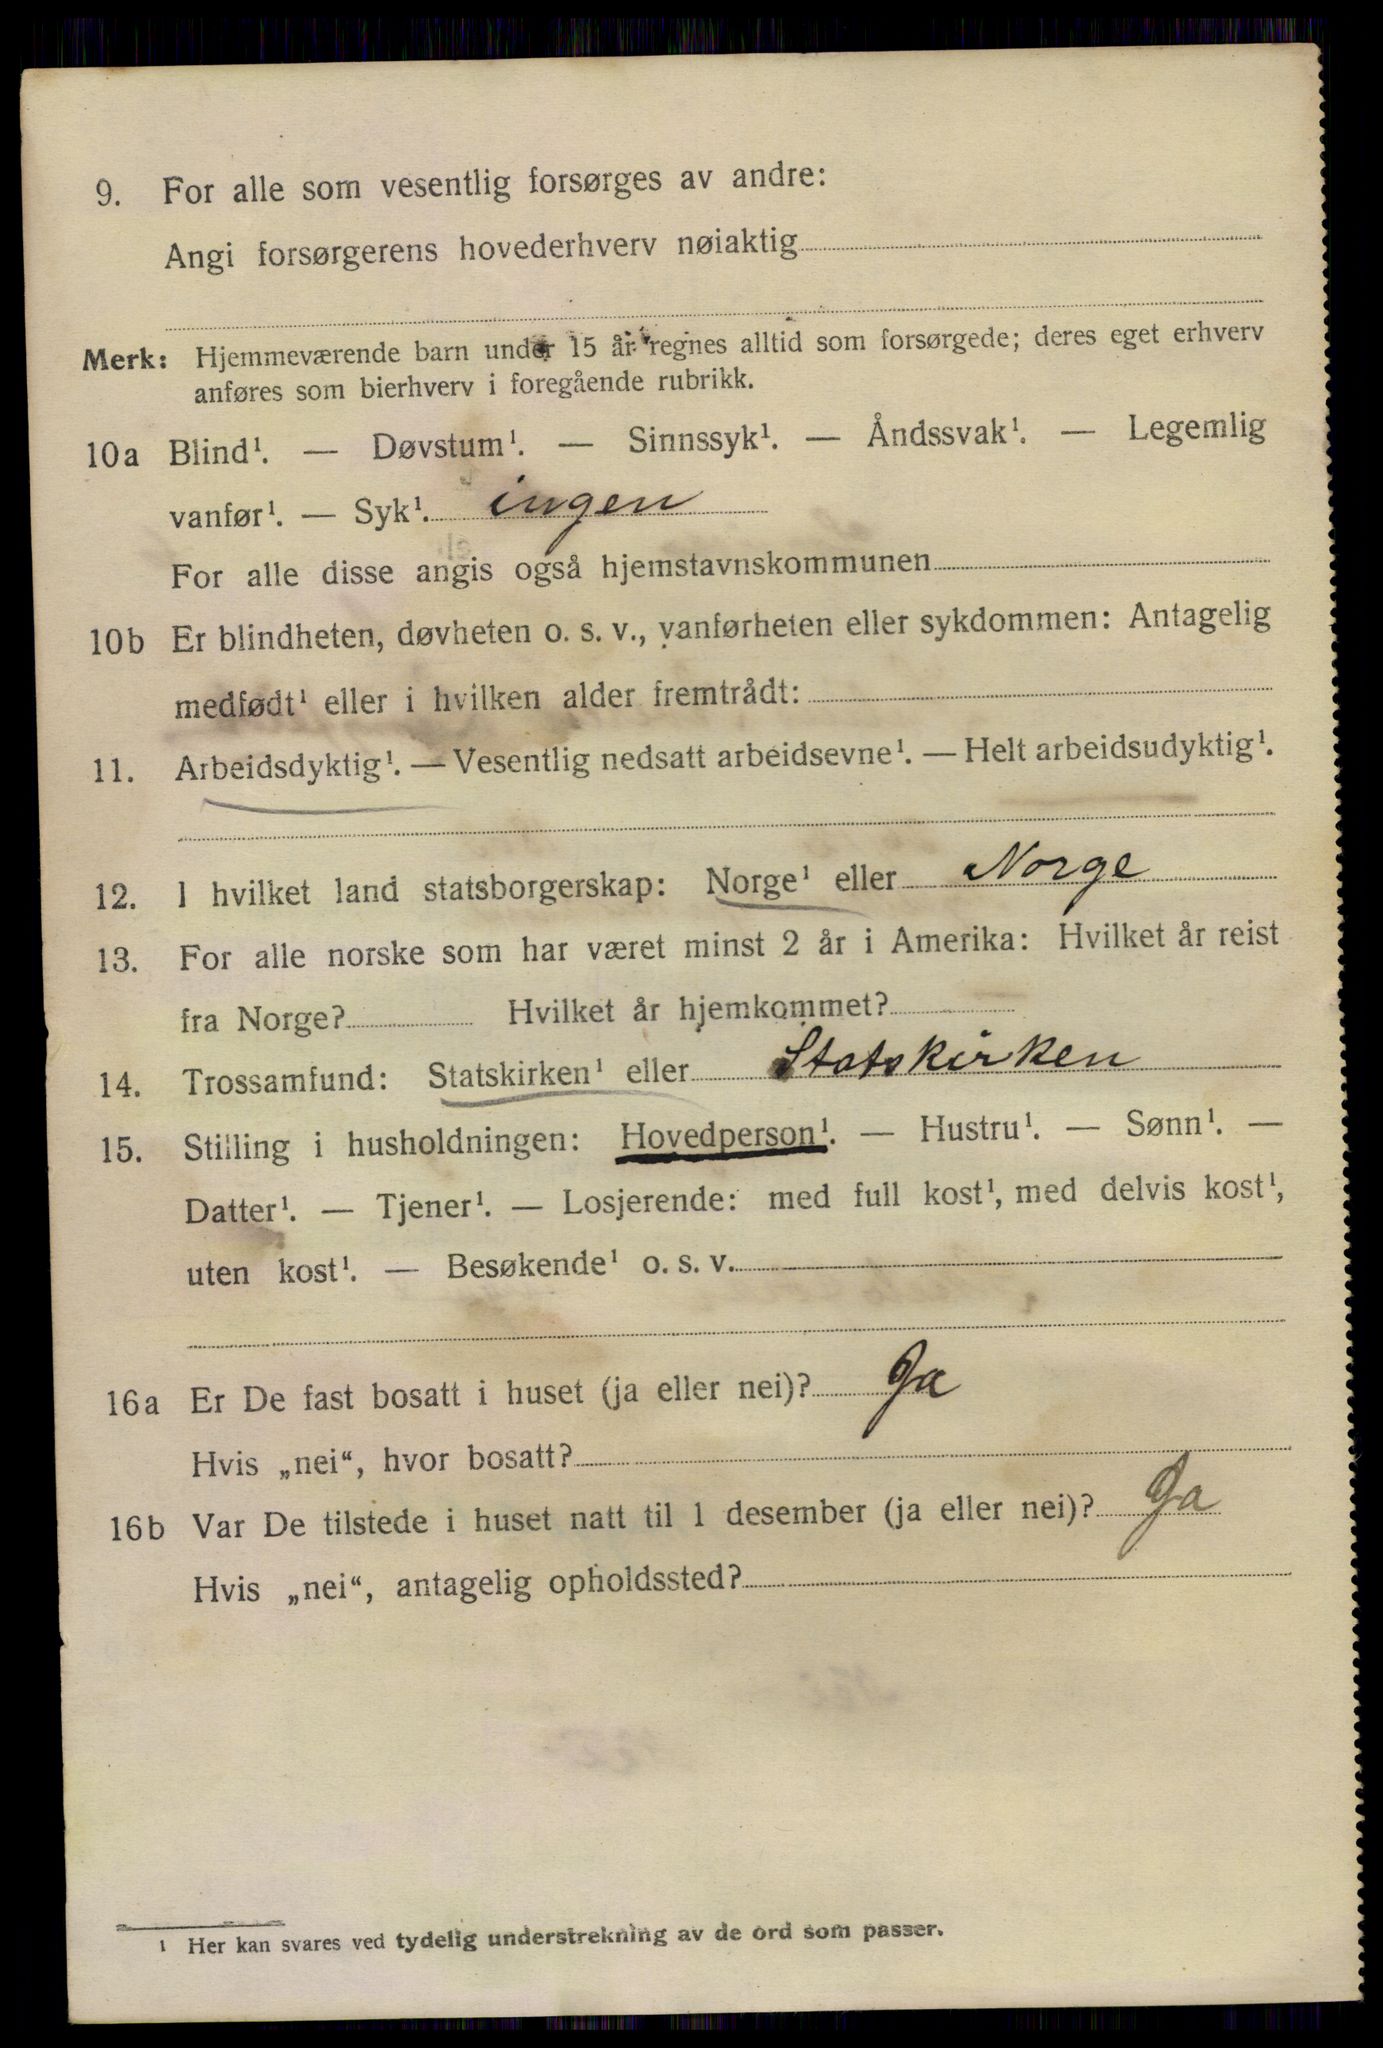 9. For alle som vesentlig forsørges av andre:
Angi forsørgerens hovederhverv nøiaktig
Merk: Hjemmeværende barn under 15 år regnes alltid som forsørgede; deres eget erhverv
anføres som bierhverv i foregående rubrikk.
10a Blind¹. — Døvstum¹. — Sinnssyk¹. — Åndssvak¹. — Legemlig
vanfør¹. — Syk¹. ingen
For alle disse angis også hjemstavnskommunen
10b Er blindheten, døvheten o. s. v., vanførheten eller sykdommen: Antagelig
medfødt¹ eller i hvilken alder fremtrådt:
11. Arbeidsdyktig¹. — Vesentlig nedsatt arbeidsevne¹. — Helt arbeidsudyktig¹.
12. I hvilket land statsborgerskap: Norge¹ eller Norge
13. For alle norske som har været minst 2 år i Amerika: Hvilket år reist
fra Norge? Hvilket år hjemkommet?
14. Trossamfund: Statskirken¹ eller Statskirken
15. Stilling i husholdningen: Hovedperson¹. — Hustru¹. — Sønn¹. —
Datter¹. — Tjener¹. — Losjerende: med full kost¹, med delvis kost¹,
uten kost¹. — Besøkende¹ o. s. v.
16a Er De fast bosatt i huset (ja eller nei)? Ja
Hvis „nei“, hvor bosatt?
16b Var De tilstede i huset natt til 1 desember (ja eller nei)? Ja
Hvis „nei“, antagelig opholdssted?
¹ Her kan svares ved tydelig understrekning av de ord som passer.